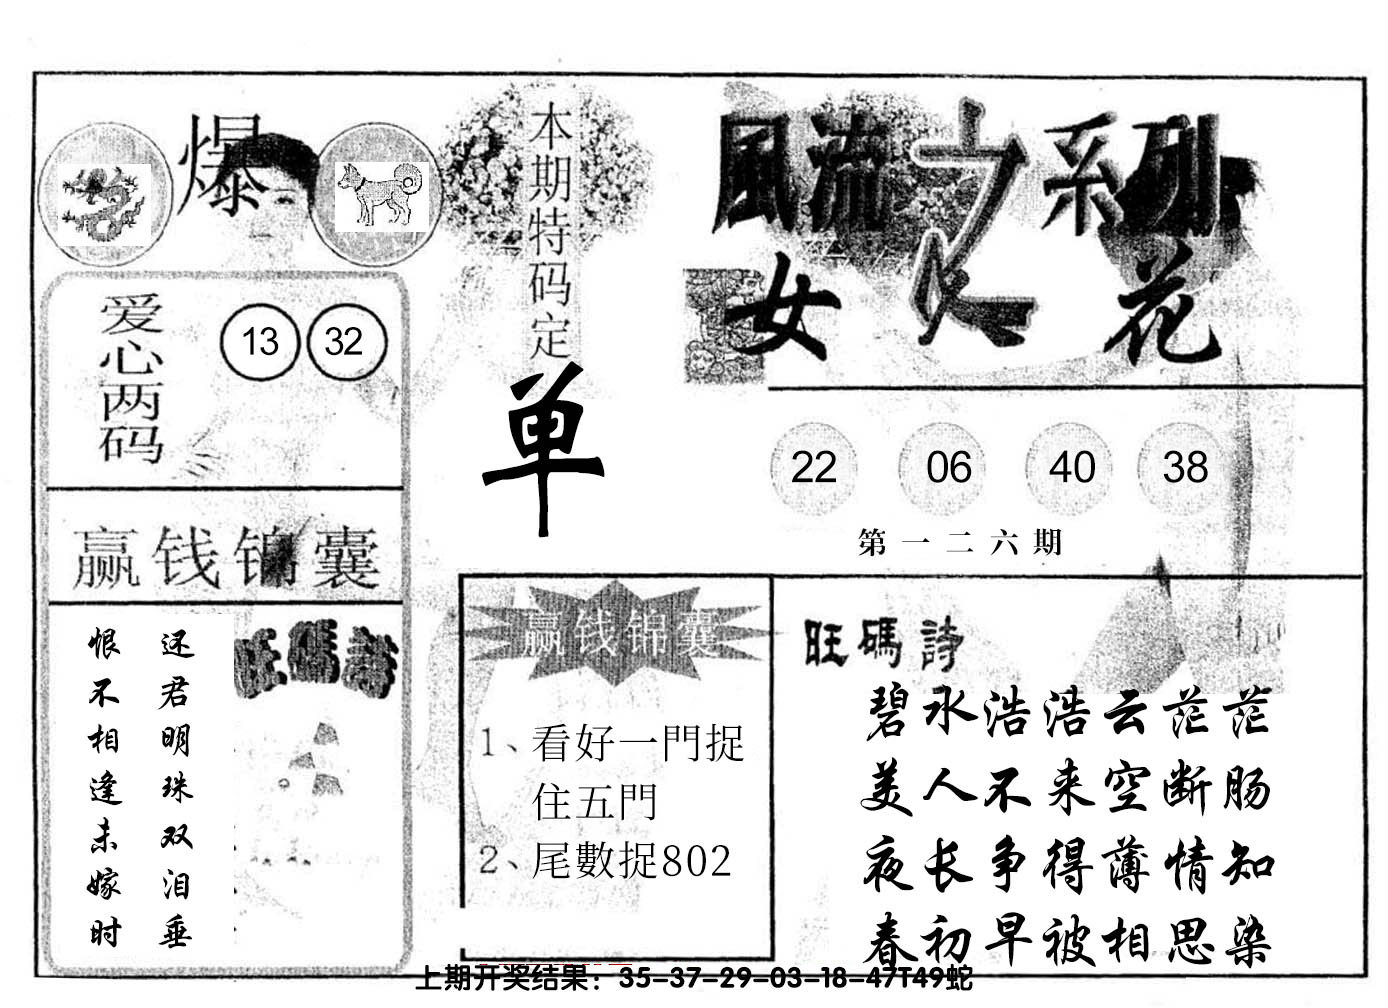 爆
爱心两码
13 32
赢钱锦囊
还君明珠双泪垂
恨不相逢未嫁时
旺碼詩
本期特码定
单
風流之系列
女人花
22 06 40 38
第一二六期
赢钱锦囊
1、看好一門捉
住五門
2、尾數捉802
旺碼詩
碧水浩浩云茫茫
美人不来空断肠
夜长争得薄情知
春初早被相思染
上期开奖结果：35-37-29-03-18-47T49蛇